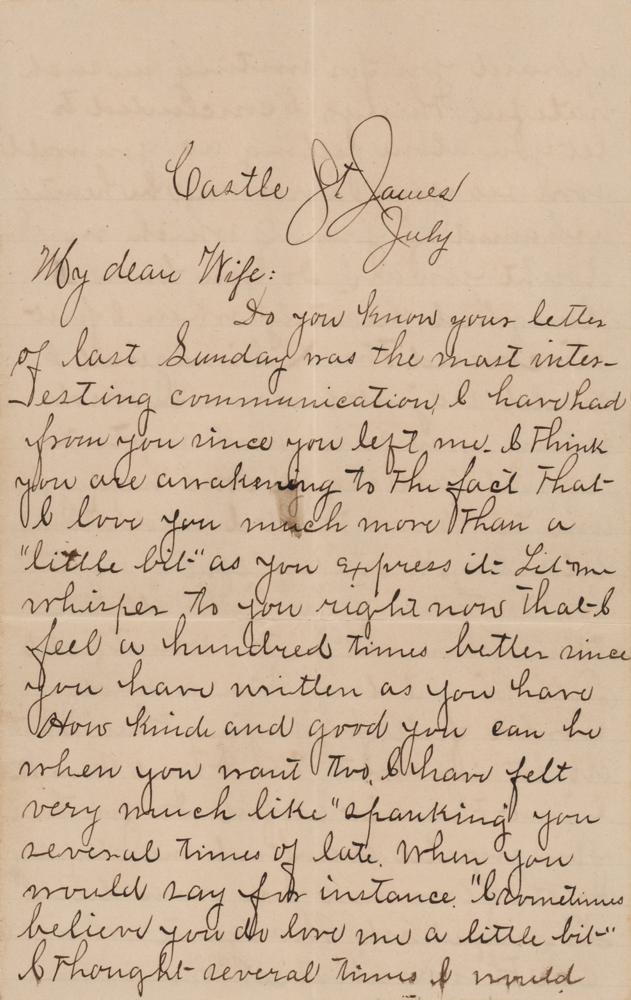 Castle St James
July
My dear Wife:
Do you know your letter
of last Sunday was the most inter-
esting communication, I have had
from you since you left me. I think
you are awakening to the fact that
I love you much more than a
"little bit" as you express it. Let me
whisper to you right now that I
feel a hundred times better since
you have written as you have
How kind and good you can be
when you want two, I have felt
very much like "spanking" you
several times of late. When you
would say for instance. "I sometimes
believe you do love me a little bit"
I thought several times I would